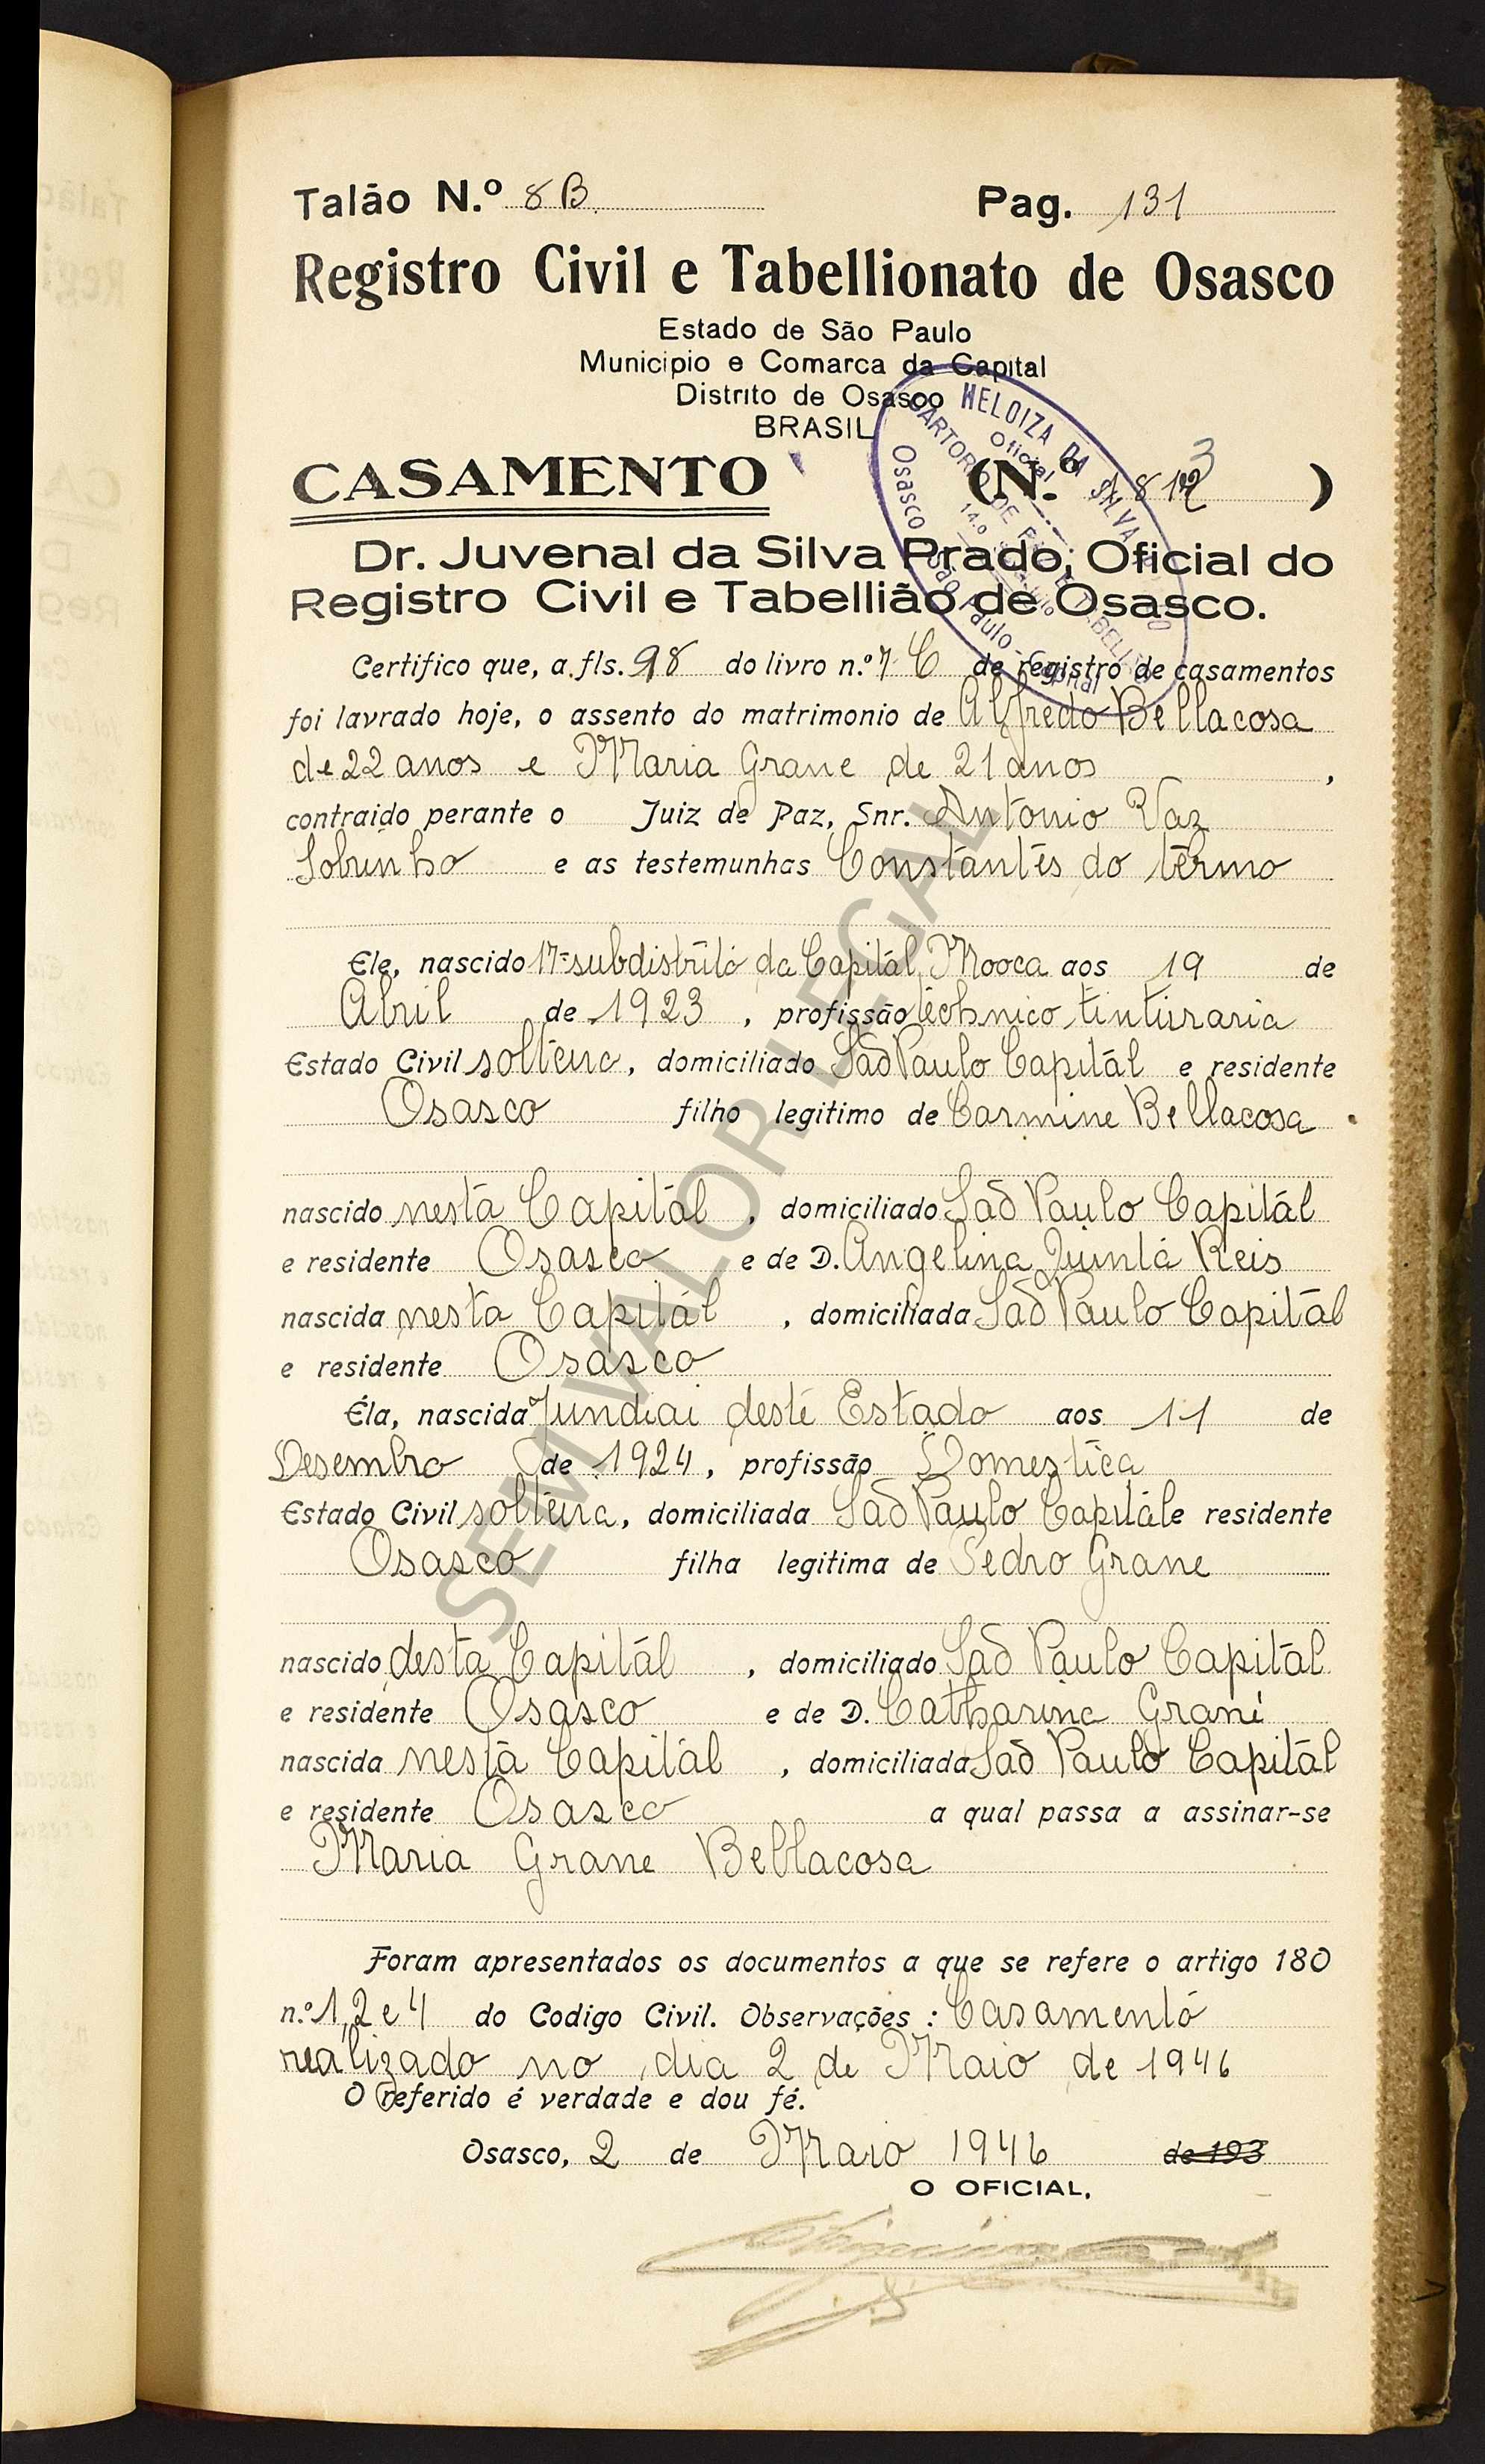 Talão N.º 8 B. Pag. 131
Registro Civil e Tabellionato de Osasco
Estado de São Paulo
Municipio e Comarca da Capital
Distrito de Osasco
BRASIL
HELOIZA DA SILVA
Oficial
Osasco São Paulo - Capital
CASAMENTO (N.º )
Dr. Juvenal da Silva Prado, Oficial do
Registro Civil e Tabellião de Osasco.
Certifico que, a fls. 98 do livro n.º 7 C de registro de casamentos
foi lavrado hoje, o assento do matrimonio de Alfredo Bellacosa
de 22 anos e Maria Grane de 21 anos ,
contraido perante o Juiz de Paz, Snr. Antonio Vaz
Sobrinho e as testemunhas Constantes do têrmo
Ele, nascido 17º subdistrito da Capitál Mooca aos 19 de
Abril de 1923 , profissão téchnico tinturaria
Estado Civil solteiro, domiciliado São Paulo Capitál e residente
Osasco filho legitimo de Carmine Bellacosa .
nascido nesta Capitál , domiciliado São Paulo Capitál
e residente Osasco e de D. Angelina Quinta Reis
nascida nesta Capitál , domiciliada São Paulo Capitál
e residente Osasco
Éla, nascida Jundiai deste Estado aos 11 de
Desembro de 1924, profissão Domestica
Estado Civil solteira, domiciliada São Paulo Capitál e residente
Osasco filha legitima de Pedro Grane
nascido desta Capitál , domiciliado São Paulo Capitál
e residente Osasco e de D. Catharina Grane
nascida nesta Capitál , domiciliada São Paulo Capitál
e residente Osasco a qual passa a assinar-se
Maria Grane Bellacosa
Foram apresentados os documentos a que se refere o artigo 180
n.º 1, 2 e 4 do Codigo Civil. Observações : Casamento
realizado no dia 2 de Maio de 1946
O referido é verdade e dou fé.
Osasco, 2 de Maio 1946 de 193
O OFICIAL,
SEM VALOR LEGAL